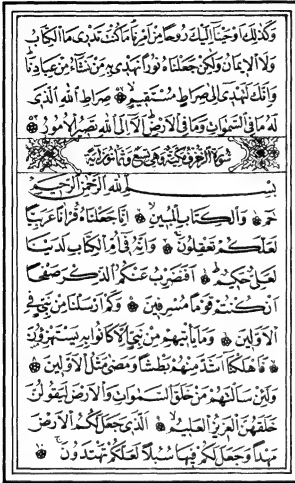 وَكَذٰلِكَ اَوْحَيْنَٓا اِلَيْكَ رُوحًا مِنْ اَمْرِنَا مَا كُنْتَ تَدْرٖى مَا الْكِتَابُ
وَلَا الْاٖيمَانُ وَلٰكِنْ جَعَلْنَاهُ نُورًا نَهْدٖى بِهٖ مَنْ نَشَٓاءُ مِنْ عِبَادِنَا
وَاِنَّكَ لَتَهْدٖٓى اِلٰى صِرَاطٍ مُسْتَقٖيمٍ ۞ صِرَاطِ اللّٰهِ الَّذٖى
لَهُ مَا فِى السَّمٰوَاتِ وَمَا فِى الْاَرْضِ اَلَٓا اِلَى اللّٰهِ تَصٖيرُ الْاُمُورُ ۞
سُورَةُ الزُّخْرُفِ مَكِّيَّةٌ وَهِىَ تِسْعٌ وَثَمَانُونَ اٰيَةً
بِسْمِ اللّٰهِ الرَّحْمٰنِ الرَّحٖيمِ
حٰمٓ ۞ وَالْكِتَابِ الْمُبٖينِ ۞ اِنَّا جَعَلْنَاهُ قُرْاٰنًا عَرَبِيًّا
لَعَلَّكُمْ تَعْقِلُونَ ۞ وَاِنَّهُ فٖٓى اُمِّ الْكِتَابِ لَدَيْنَا
لَعَلِىٌّ حَكٖيمٌ ۞ اَفَنَضْرِبُ عَنْكُمُ الذِّكْرَ صَفْحًا
اَنْ كُنْتُمْ قَوْمًا مُسْرِفٖينَ ۞ وَكَمْ اَرْسَلْنَا مِنْ نَبِىٍّ فِى
الْاَوَّلٖينَ ۞ وَمَا يَاْتٖيهِمْ مِنْ نَبِىٍّ اِلَّا كَانُوا بِهٖ يَسْتَهْزِؤُنَ
۞ فَاَهْلَكْنَٓا اَشَدَّ مِنْهُمْ بَطْشًا وَمَضٰى مَثَلُ الْاَوَّلٖينَ ۞
وَلَئِنْ سَاَلْتَهُمْ مَنْ خَلَقَ السَّمٰوَاتِ وَالْاَرْضَ لَيَقُولُنَّ
خَلَقَهُنَّ الْعَزٖيزُ الْعَلٖيمُ ۞ اَلَّذٖى جَعَلَ لَكُمُ الْاَرْضَ
مَهْدًا وَجَعَلَ لَكُمْ فٖيهَا سُبُلًا لَعَلَّكُمْ تَهْتَدُونَ ۞